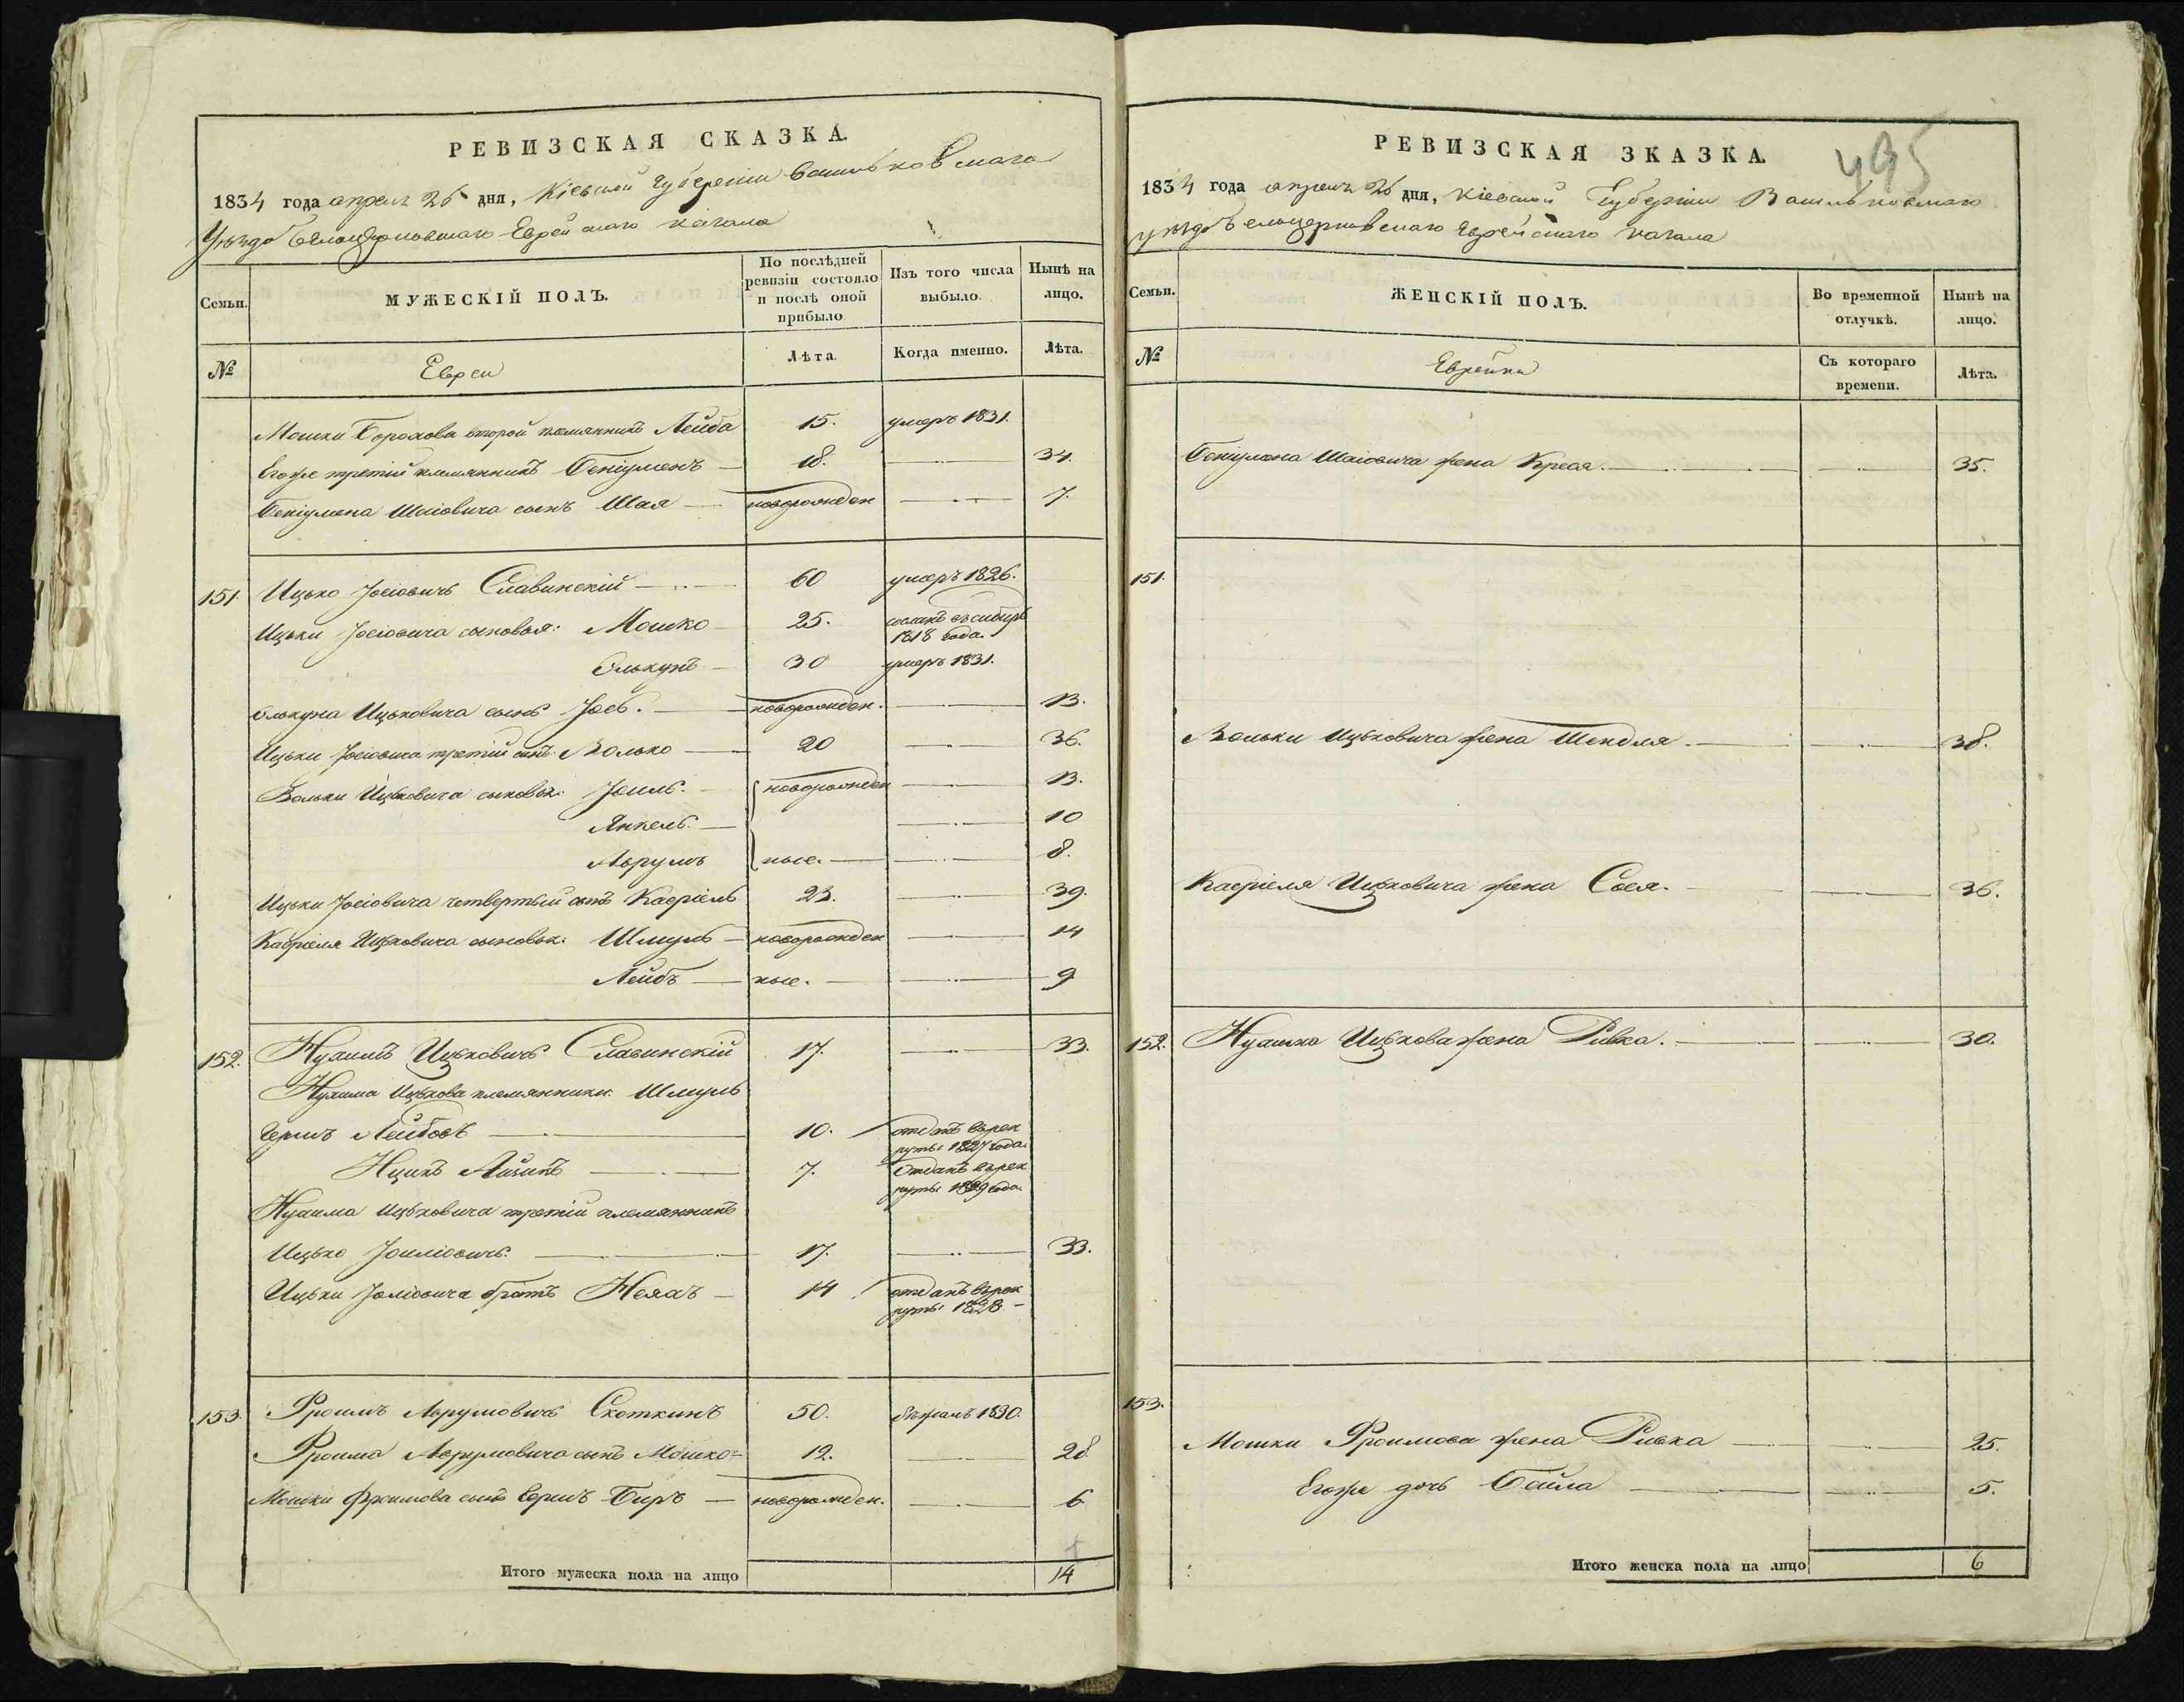 РЕВИЗСКАЯ СКАЗКА.
1834 года апреля 26 дня, Кіевской Губерніи Васильковскаго
Уѣзда Бѣлоцерковскаго Еврейскаго Кагала
Семьи.
МУЖЕСКІЙ ПОЛЪ.
По послѣдней ревизіи состояло и послѣ оной прибыло
Изъ того числа выбыло.
Нынѣ на лицо.
№
Евреи
Лѣта.
Когда именно.
Лѣта.
Мошки Борохова второй племянникъ Лейба 15. умеръ 1831.
Егоже третій племянникъ Беніуменъ — 18. — 34.
Беніумена Шаіовича сынъ Шая — новорожден — 7.
151 Ицько Іосіовичъ Славинскій — 60 умеръ 1826.
Ицьки Іосіовича сыновья: Мошко — 25. сосланъ въ сибирь
1818 года.
Элькунъ — 30 умеръ 1831.
Элькуна Ицьковича сынъ Іось. — новорожден. — 13.
Ицьки Іосіовича третій сынъ Волько — 20 — 36.
Вольки Ицьковича сыновья: Іоиль. — новорожден — 13.
Янкель. — — 10
Аврумъ ные. — — 8.
Ицьки Іосіовича четвертый сынъ Касріель 23. — 39.
Касріеля Ицьковича сыновья: Шмуль — новорожден — 14
Лейбъ — ные. — — 9
152. Нухимъ Ицьковичъ Славинскій 17. — 33.
Нухима Ицькова племянники: Шмуль
Гершъ Лейбовъ — 10. отданъ върек
руты 1827 года.
Ицикъ Айзикъ — 7. Отданъ върек
руты 1829 года.
Нухима Ицьковича третій племянникъ
Ицько Іоиліовичъ. — 17. — 33.
Ицьки Іоиліовича братъ — 14 отданъ върек
руты 1828. —
153. Фроимъ Аврумовичъ Скоткинъ 50. бѣжалъ 1830.
Фроима Аврумовича сынъ Мошко — 12. — 28
Мошки Фроимова сынъ Бершъ Биръ — новорожден. — 6
Итого мужеска пола на лицо 14
РЕВИЗСКАЯ ЗКАЗКА.
495
1834 года апреля 26 дня, Кіевской Губерніи Васильковскаго
уѣзда Белоцерковскаго Еврейскаго Кагала
Семьи.
ЖЕНСКІЙ ПОЛЪ.
Во временной отлучкѣ.
Нынѣ на лицо.
№
Еврейки
Съ котораго времени.
Лѣта.
Беніумена Шаіовича жена Креся. — — 35.
151.
Вольки Ицьковича жена Шендля. — — 38.
Касріеля Ицьковича жена Сося. — — 36.
152. Нухима Ицькова жена Ривка. — — 30.
153.
Мошки Фроимова жена Ривка — — 25.
Егоже дочь Байла — — 5.
Итого женска пола на лицо 6